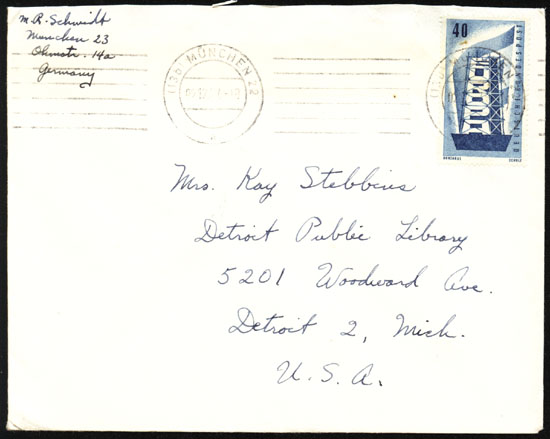 M. R. Schmidt
München 23
Ohmstr. 14a
Germany
(13b) MÜNCHEN 22
40
DEUTSCHE BUNDESPOST
Mrs. Kay Stebbins
Detroit Public Library
5201 Woodward Ave.
Detroit 2, Mich.
U. S. A.